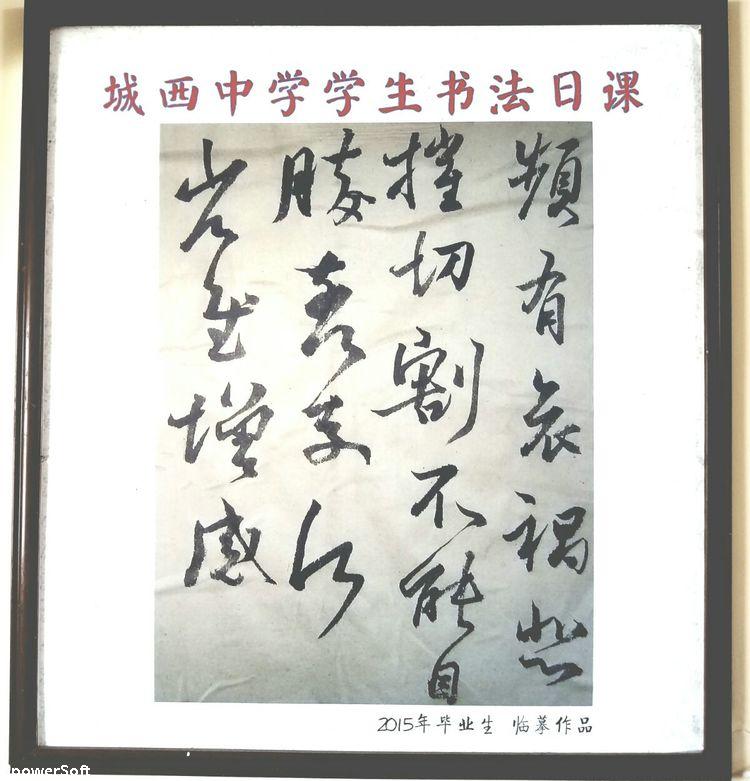 城西中学学生书法日课
頻有哀禍悲
摧切割不能自
勝奈何奈何
省慰增感
2015年毕业生 临摹作品
powerSoft